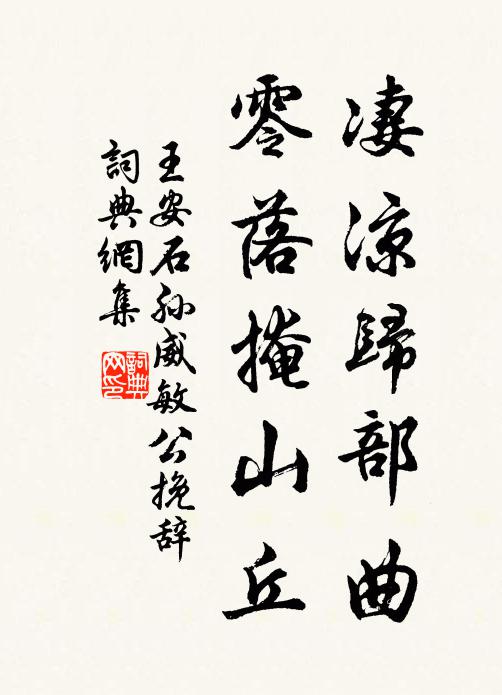 凄涼歸部曲
零落掩山丘
王安石孙威敏公挽辞
詞典網集
詞典
网印